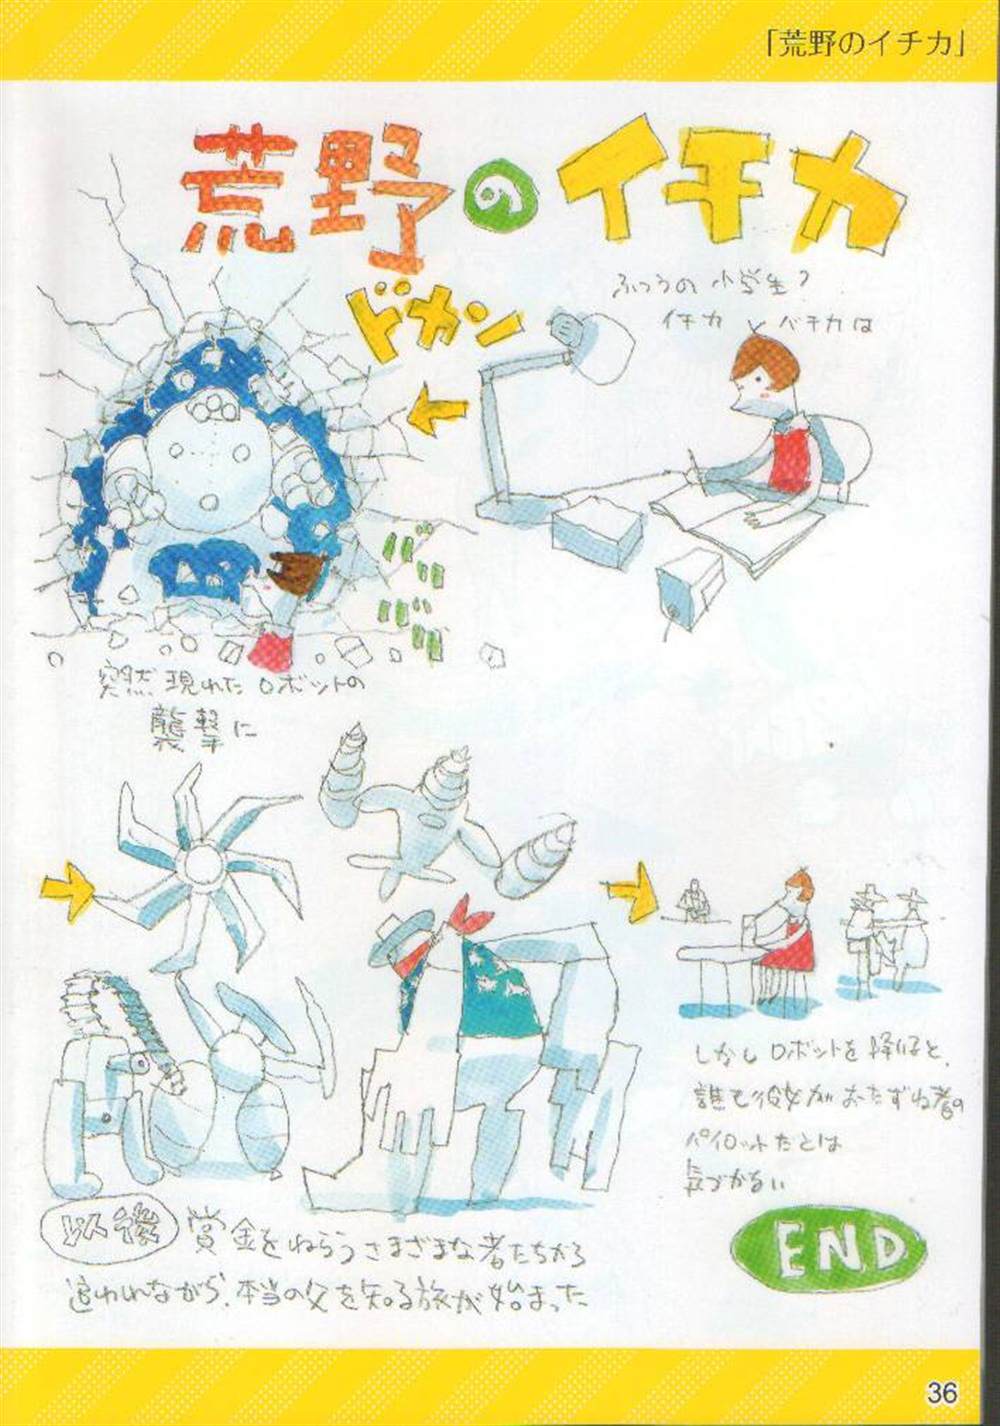 「荒野のイチカ」
荒野のイチカ
ふつうの小学生?
イチカ バチカは
ドカン
ババ
ババ
突然現れたロボットの
襲撃に
しかしロボットを降りると、
誰も彼女がおたずね者の
パイロットだとは
気づかない
以後 賞金をねらうさまざまな者たちから
追われながら、本当の父を知る旅が始まった
END
36